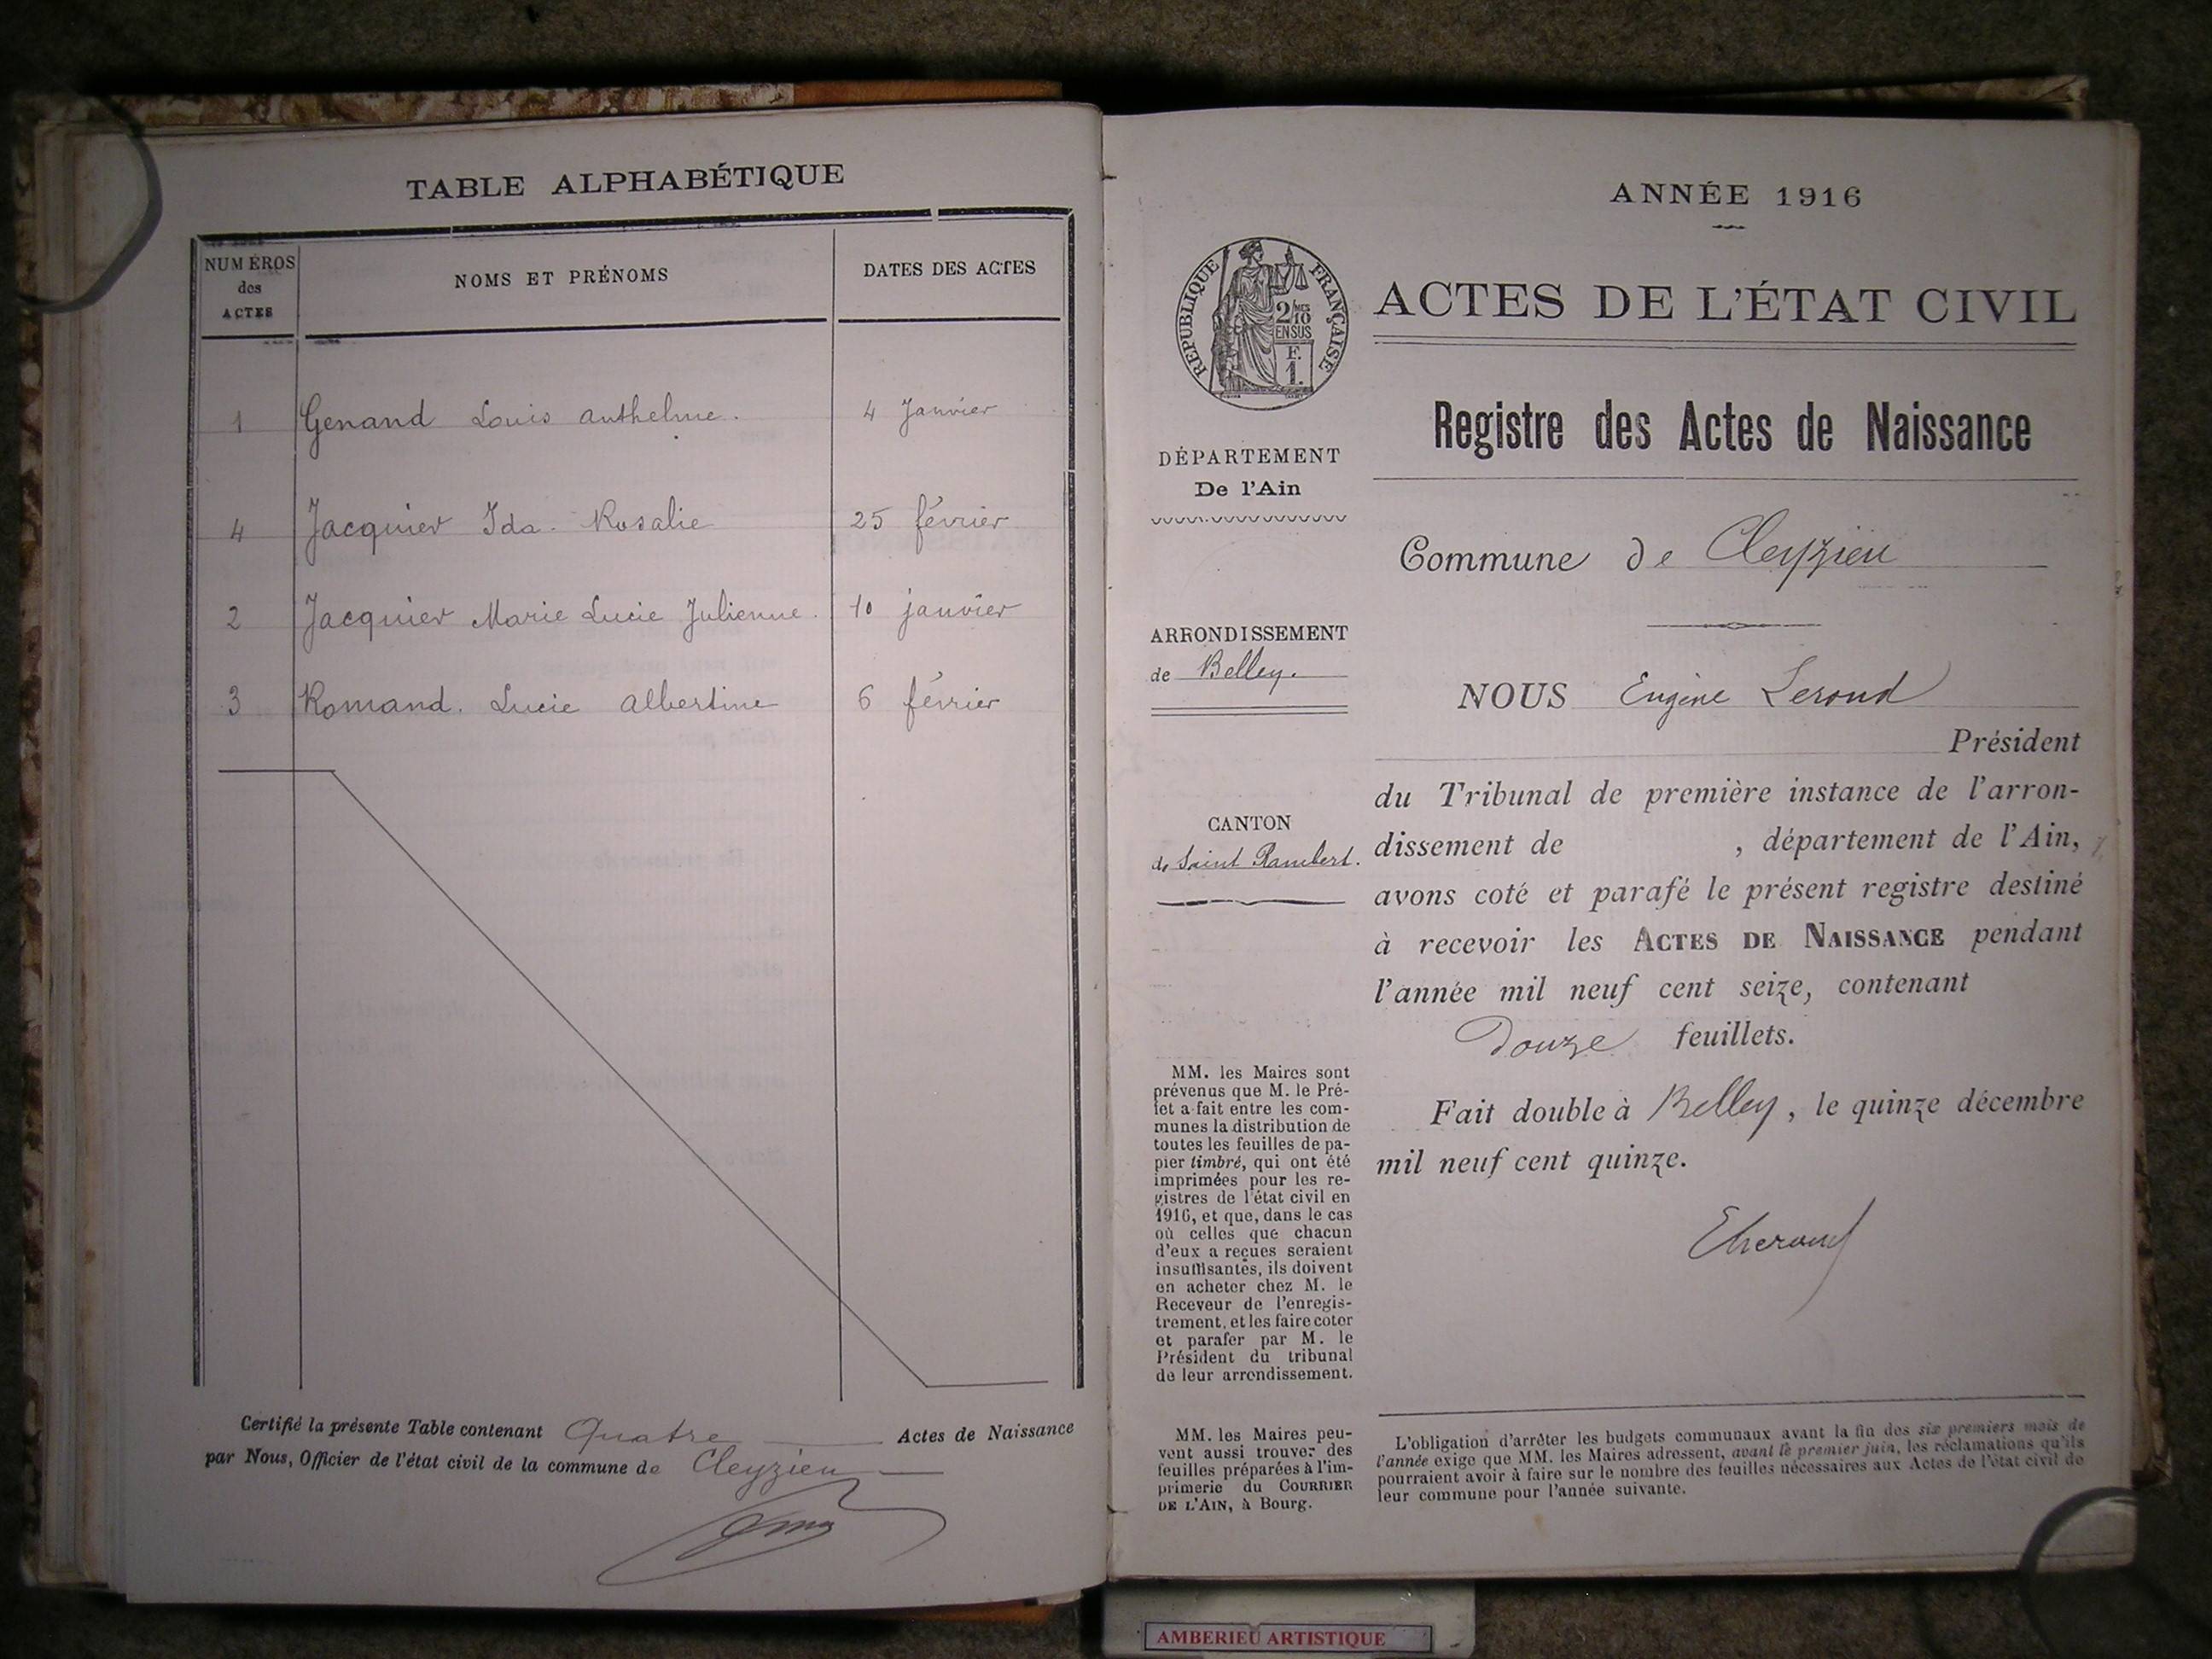 TABLE ALPHABÉTIQUE
NUMÉROS
des
ACTES
NOMS ET PRÉNOMS
DATES DES ACTES
1 Genand Louis Anthelme. 4 Janvier
4 Jacquier Ida. Rosalie 25 février
2 Jacquier Marie Lucie Julienne. 10 janvier
3 Romand. Lucie Albertine 6 février
Certifié la présente Table contenant Quatre Actes de Naissance
par Nous, Officier de l'état civil de la commune de Cleyzieu
ANNÉE 1916
REPUBLIQUE FRANÇAISE
2/10 MES
EN SUS
F.
1.
ACTES DE L'ÉTAT CIVIL
Registre des Actes de Naissance
DÉPARTEMENT
De l'Ain
Commune de Cleyzieu
ARRONDISSEMENT
de Belley.
CANTON
de Saint Rambert.
NOUS Eugène Lerond
Président
du Tribunal de première instance de l'arron-
dissement de , département de l'Ain,
avons coté et parafé le présent registre destiné
à recevoir les ACTES DE NAISSANCE pendant
l'année mil neuf cent seize, contenant
Douze feuillets.
Fait double à Belley, le quinze décembre
mil neuf cent quinze.
MM. les Maires sont
prévenus que M. le Pré-
fet a fait entre les com-
munes la distribution de
toutes les feuilles de pa-
pier timbré, qui ont été
imprimées pour les re-
gistres de l'état civil en
1916, et que, dans le cas
où celles que chacun
d'eux a reçues seraient
insuffisantes, ils doivent
en acheter chez M. le
Receveur de l'enregis-
trement, et les faire coter
et parafer par M. le
Président du tribunal
de leur arrondissement.
MM. les Maires peu-
vent aussi trouver des
feuilles préparées à l'im-
primerie du COURRIER
DE L'AIN, à Bourg.
L'obligation d'arrêter les budgets communaux avant la fin des six premiers mois de
l'année exige que MM. les Maires adressent, avant le premier juin, les réclamations qu'ils
pourraient avoir à faire sur le nombre des feuilles nécessaires aux Actes de l'état civil de
leur commune pour l'année suivante.
AMBERIEU ARTISTIQUE